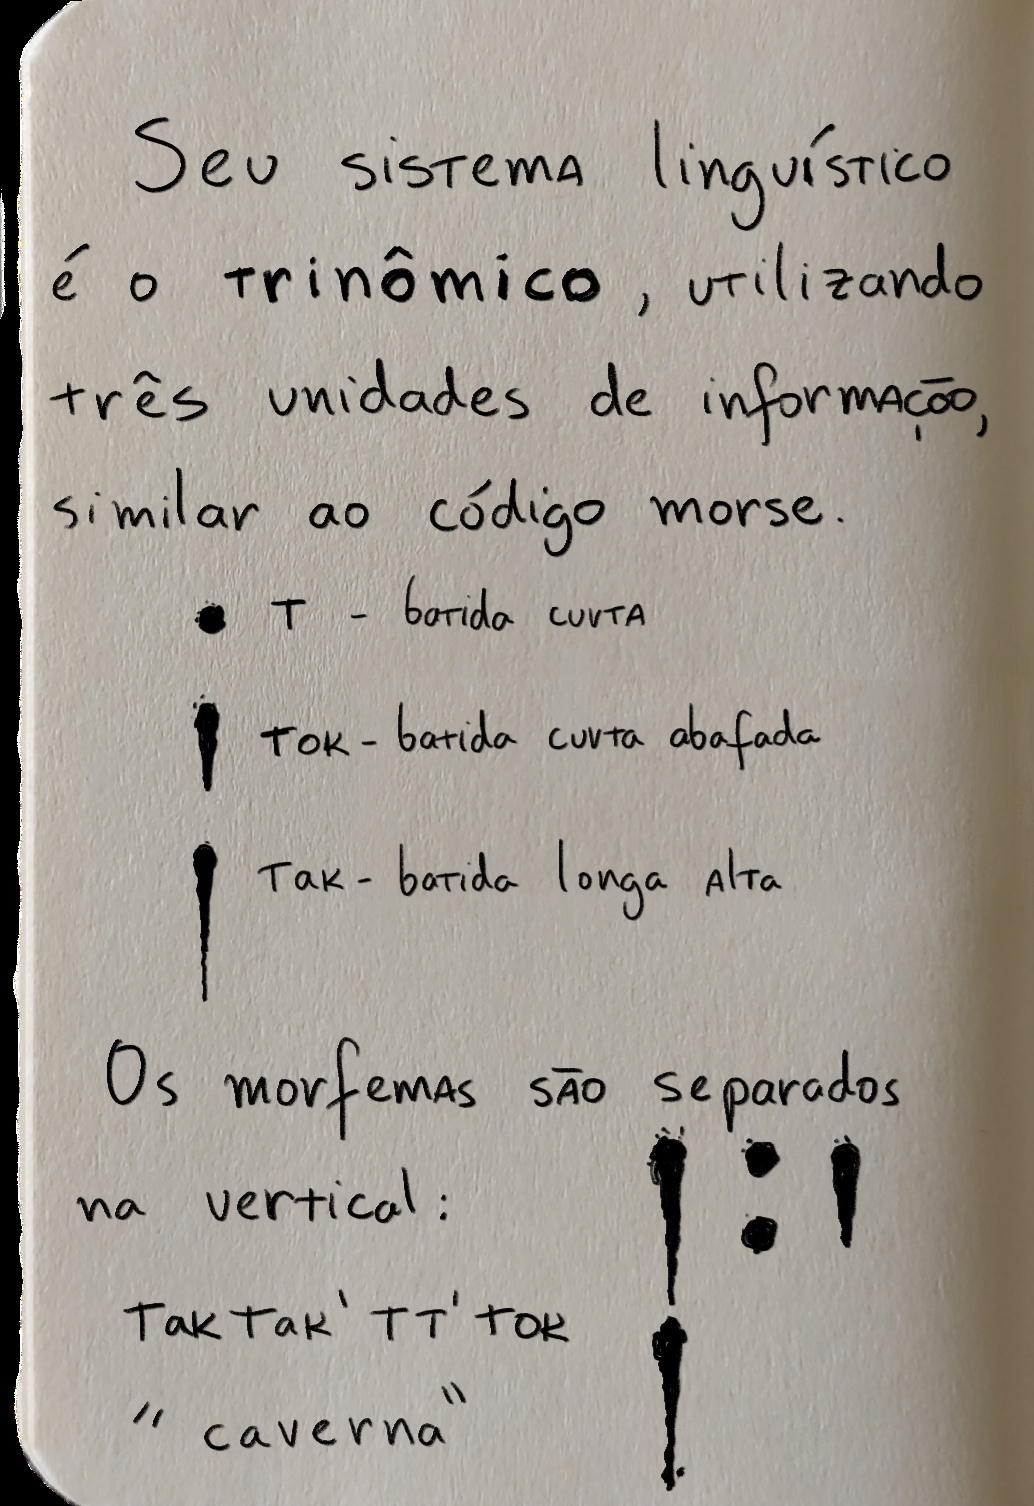 Seu sistema linguístico
é o trinômico, utilizando
três unidades de informação,
similar ao código morse.
T - batida curta
TOK - batida curta abafada
TAK - batida longa alta
Os morfemas são separados
na vertical:
TAKTAK' TT' TOK
"caverna"